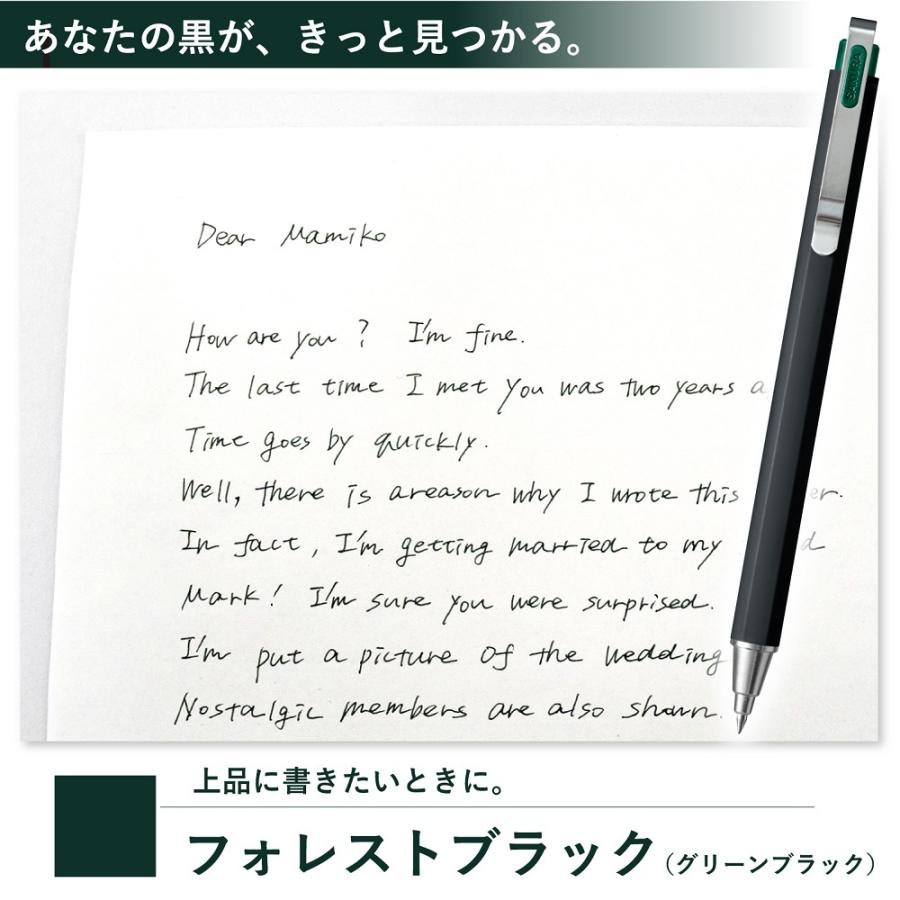 あなたの黒が、きっと見つかる。
SAKURA
Dear Mamiko
How are you ? I'm fine.
The last time I met you was two years a
Time goes by quickly.
Well, there is areason why I wrote this er.
In fact, I'm getting married to my d
Mark! I'm sure you were surprised.
I'm put a picture of the wedding
Nostalgic members are also shown.
上品に書きたいときに。
フォレストブラック(グリーンブラック)